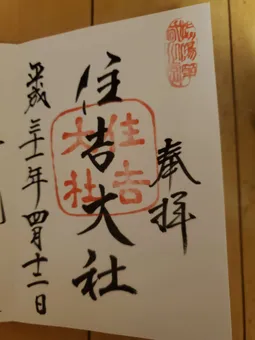 奉拝
住吉大社
住吉大社
平成三十一年四月十二日